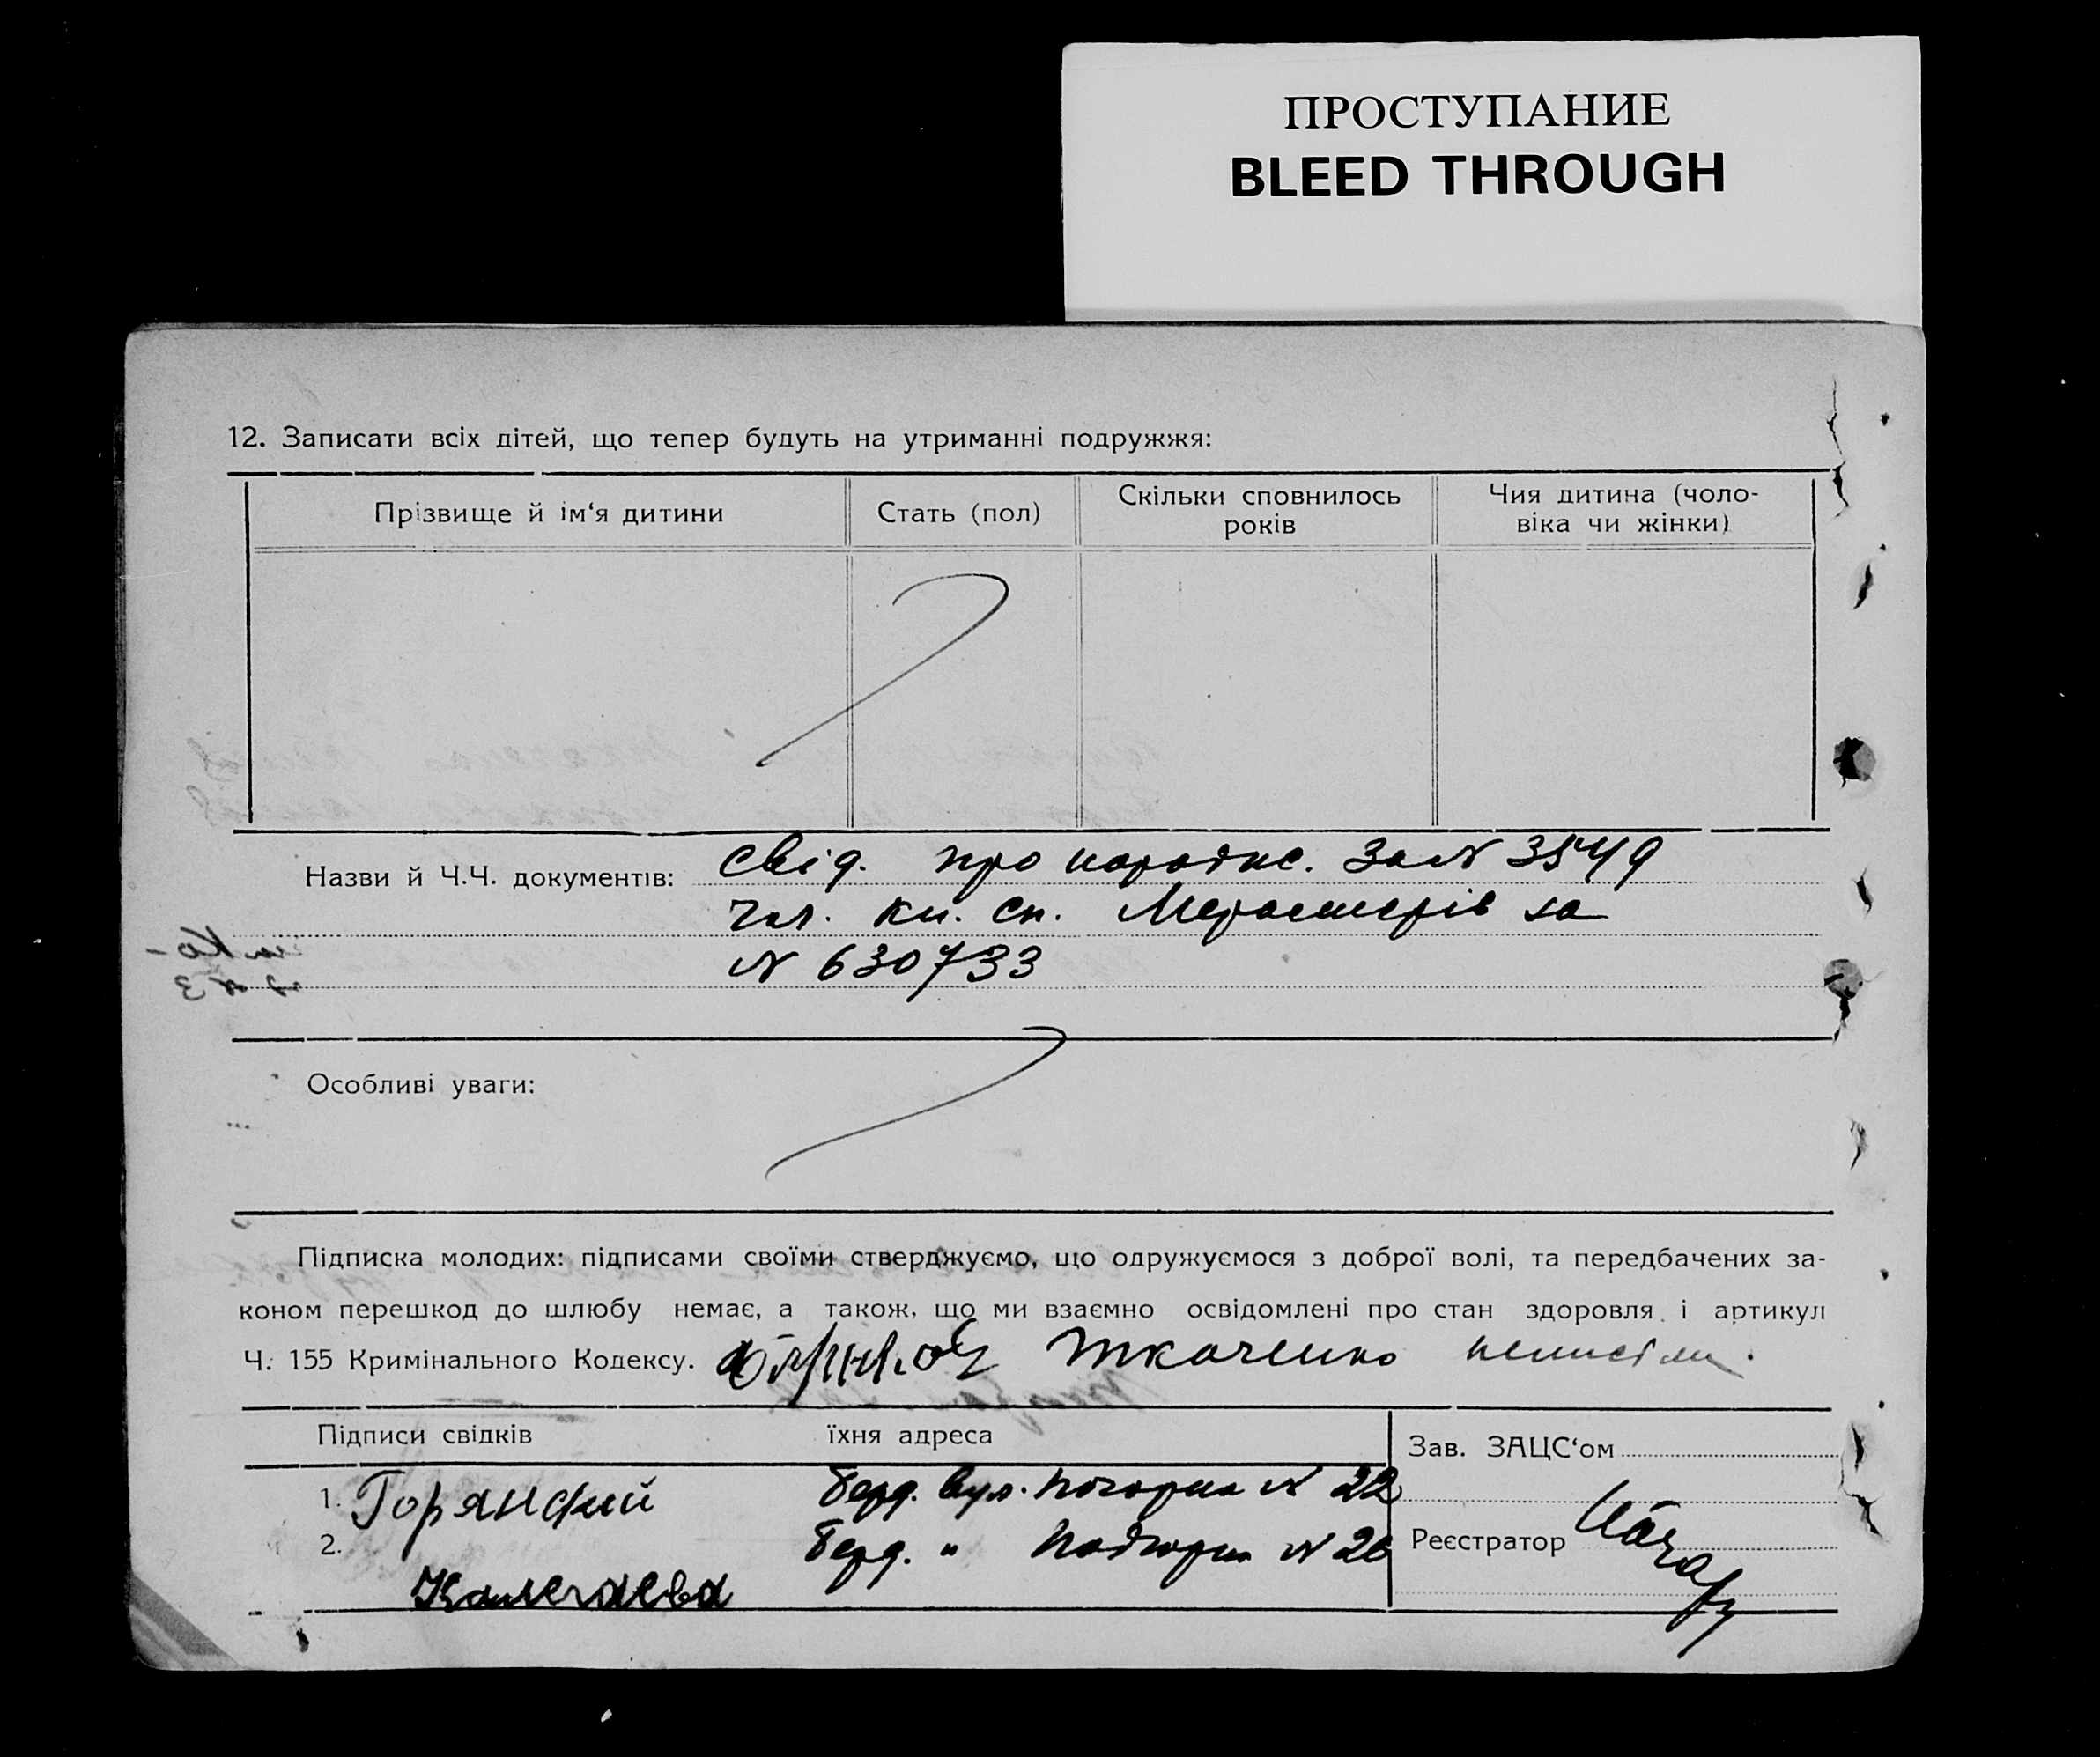 ПРОСТУПАНИЕ
BLEED THROUGH
12. Записати всіх дітей, що тепер будуть на утриманні подружжя:
Прізвище й ім‘я дитини
Стать (пол)
Скільки сповнилось
років
Чия дитина (чоло-
віка чи жінки)
Назви й Ч.Ч. документів: Свід. про народже. За N 3549
Чл. кн. сп. за
N 630733
Особливі уваги:
Підписка молодих: підписами своїми стверджуємо, що одружуємося з доброї волі, та передбачених за-
коном перешкод до шлюбу немає, а також, що ми взаємно освідомлені про стан здоровля і артикул
Ч. 155 Кримінального Кодексу. Ткаченко
Підписи свідків
їхня адреса
Зав. ЗАЦС‘ом
1. Горянский Берд. вул. N 22
2. Берд. " N 26
Реєстратор